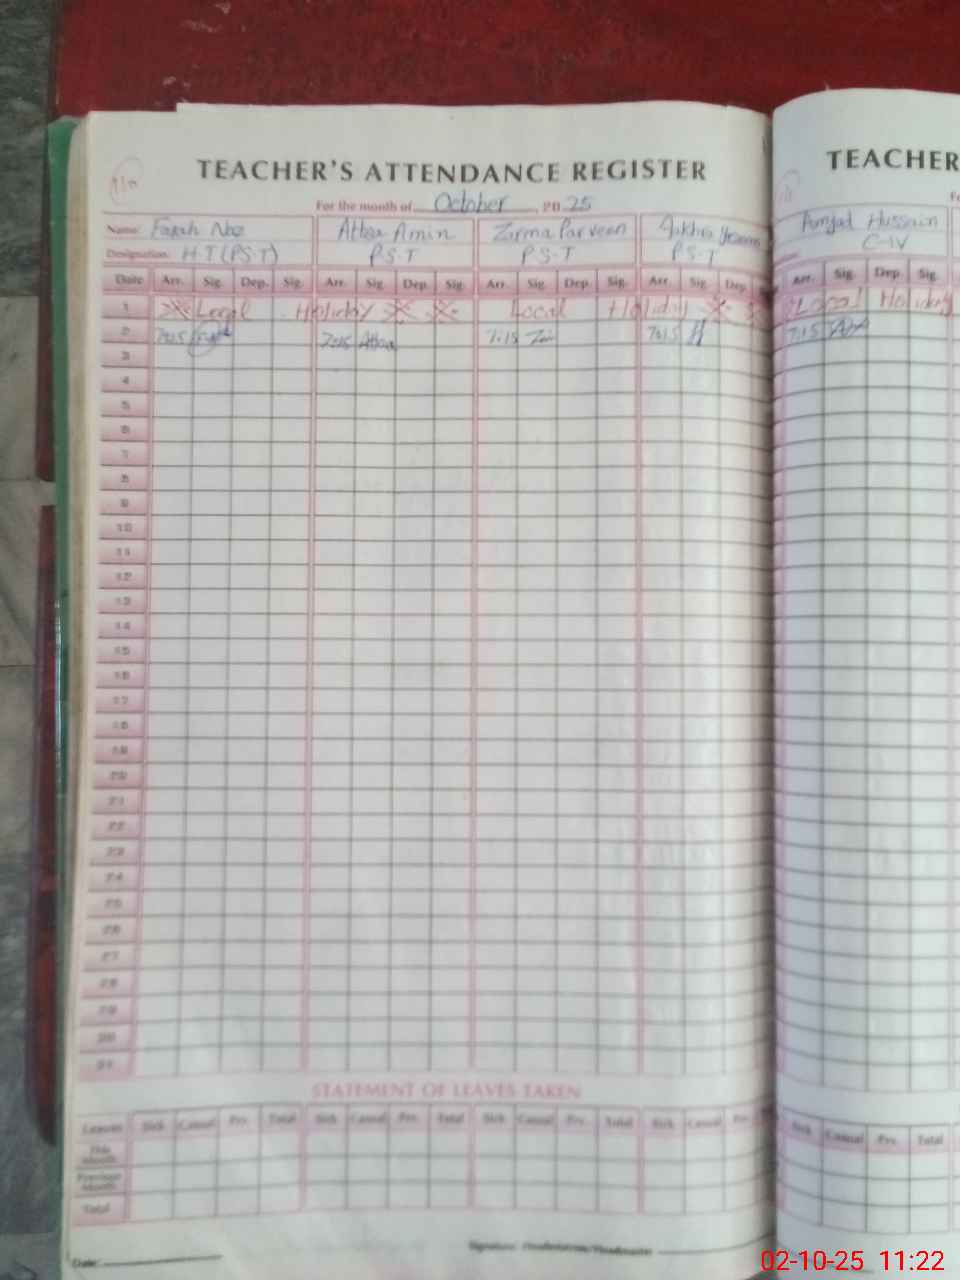 TEACHER'S ATTENDANCE REGISTER
For the month of October, 20 25
Name: Farah Naz
Attea Amin
Zarma Parveen
Designation: H.T (P.S.T)
P.S.T
P.S.T
P.S.T
Date Arr. Sig. Dep. Sig. Arr. Sig. Dep. Sig. Arr. Sig. Dep. Sig. Arr. Sig. Dep.
1 Local Holiday Local Holiday
2 7:15 7:15 Attea 7:15 7:15
3
4
5
6
7
8
9
10
11
12
13
14
15
16
17
18
19
20
21
22
23
24
25
26
27
28
29
30
31
STATEMENT OF LEAVES TAKEN
Leaves Sick Casual Prv. Total Sick Casual Prv. Total Sick Casual Prv. Total Sick Casual
This Month
Previous Month
Total
Date:
Signature: Headmistress/Headmaster
TEACHER
Amjad Hussain
C-IV
Arr. Sig. Dep. Sig.
Local Holiday
7:15
Sick Casual Prv. Total
02-10-25 11:22